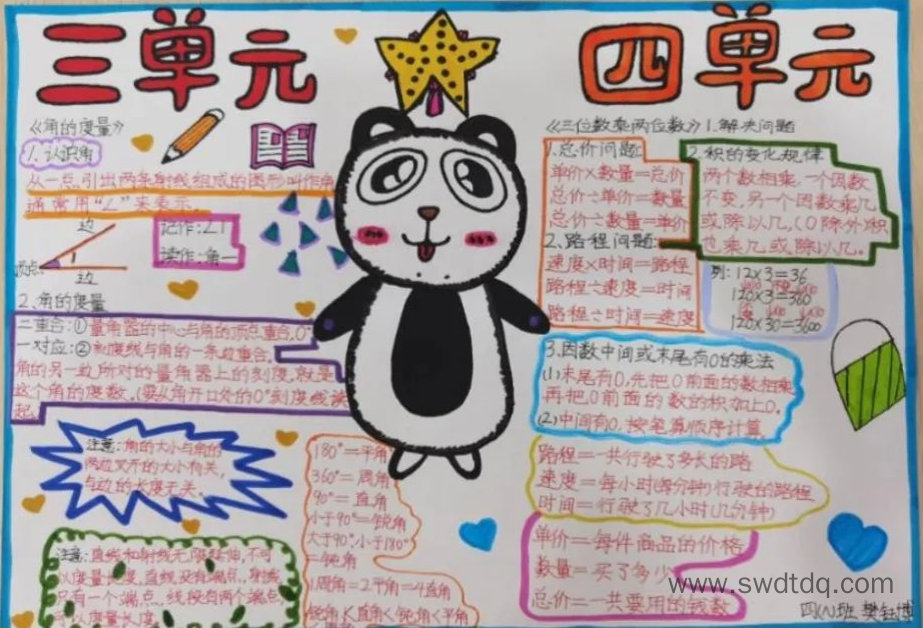 三单元
《角的度量》
1.认识角
从一点引出两条射线组成的图形叫作角
通常用“∠”来表示.
边
顶点
边
记作:∠1
读作:角一
2.角的度量
二重合:①量角器的中心与角的顶点重合,0°
一对应:②刻度线与角的一条边重合,
角的另一边所对的量角器上的刻度,就是
这个角的度数,(要从角开口处的0°刻度线读
起.
注意:角的大小与角的
两边叉开的大小有关,
与边的长度无关.
注意:直线和射线无限延伸,不可
以度量长度,直线没有端点,射线
只有一个端点,线段有两个端点
可以度量长度
180°=平角
360°=周角
90°=直角
小于90°=锐角
大于90°,小于180°
=钝角
1周角=2平角=4直角
锐角<直角<钝角<平角
四单元
《三位数乘两位数》1.解决问题
1.总价问题:
单价×数量=总价
总价÷单价=数量
总价÷数量=单价
2.路程问题:
速度×时间=路程
路程÷速度=时间
路程÷时间=速度
2.积的变化规律
两个数相乘,一个因数
不变,另一个因数乘几
或除以几,(0除外)积
也乘几或除以几。
列:12×3=36
120×3=360
120×30=3600
3.因数中间或末尾有0的乘法
(1)末尾有0,先把0前面的数相乘
再把0前面的数的积加上0.
(2)中间有0.按笔算顺序计算.
路程=一共行驶了多长的路
速度=每小时(每分钟)行驶的路程
时间=行驶了几小时(几分钟)
单价=每件商品的价格
数量=买了多少
总价=一共要用的钱数
www.swdtdq.com
四(1)班 樊钰博